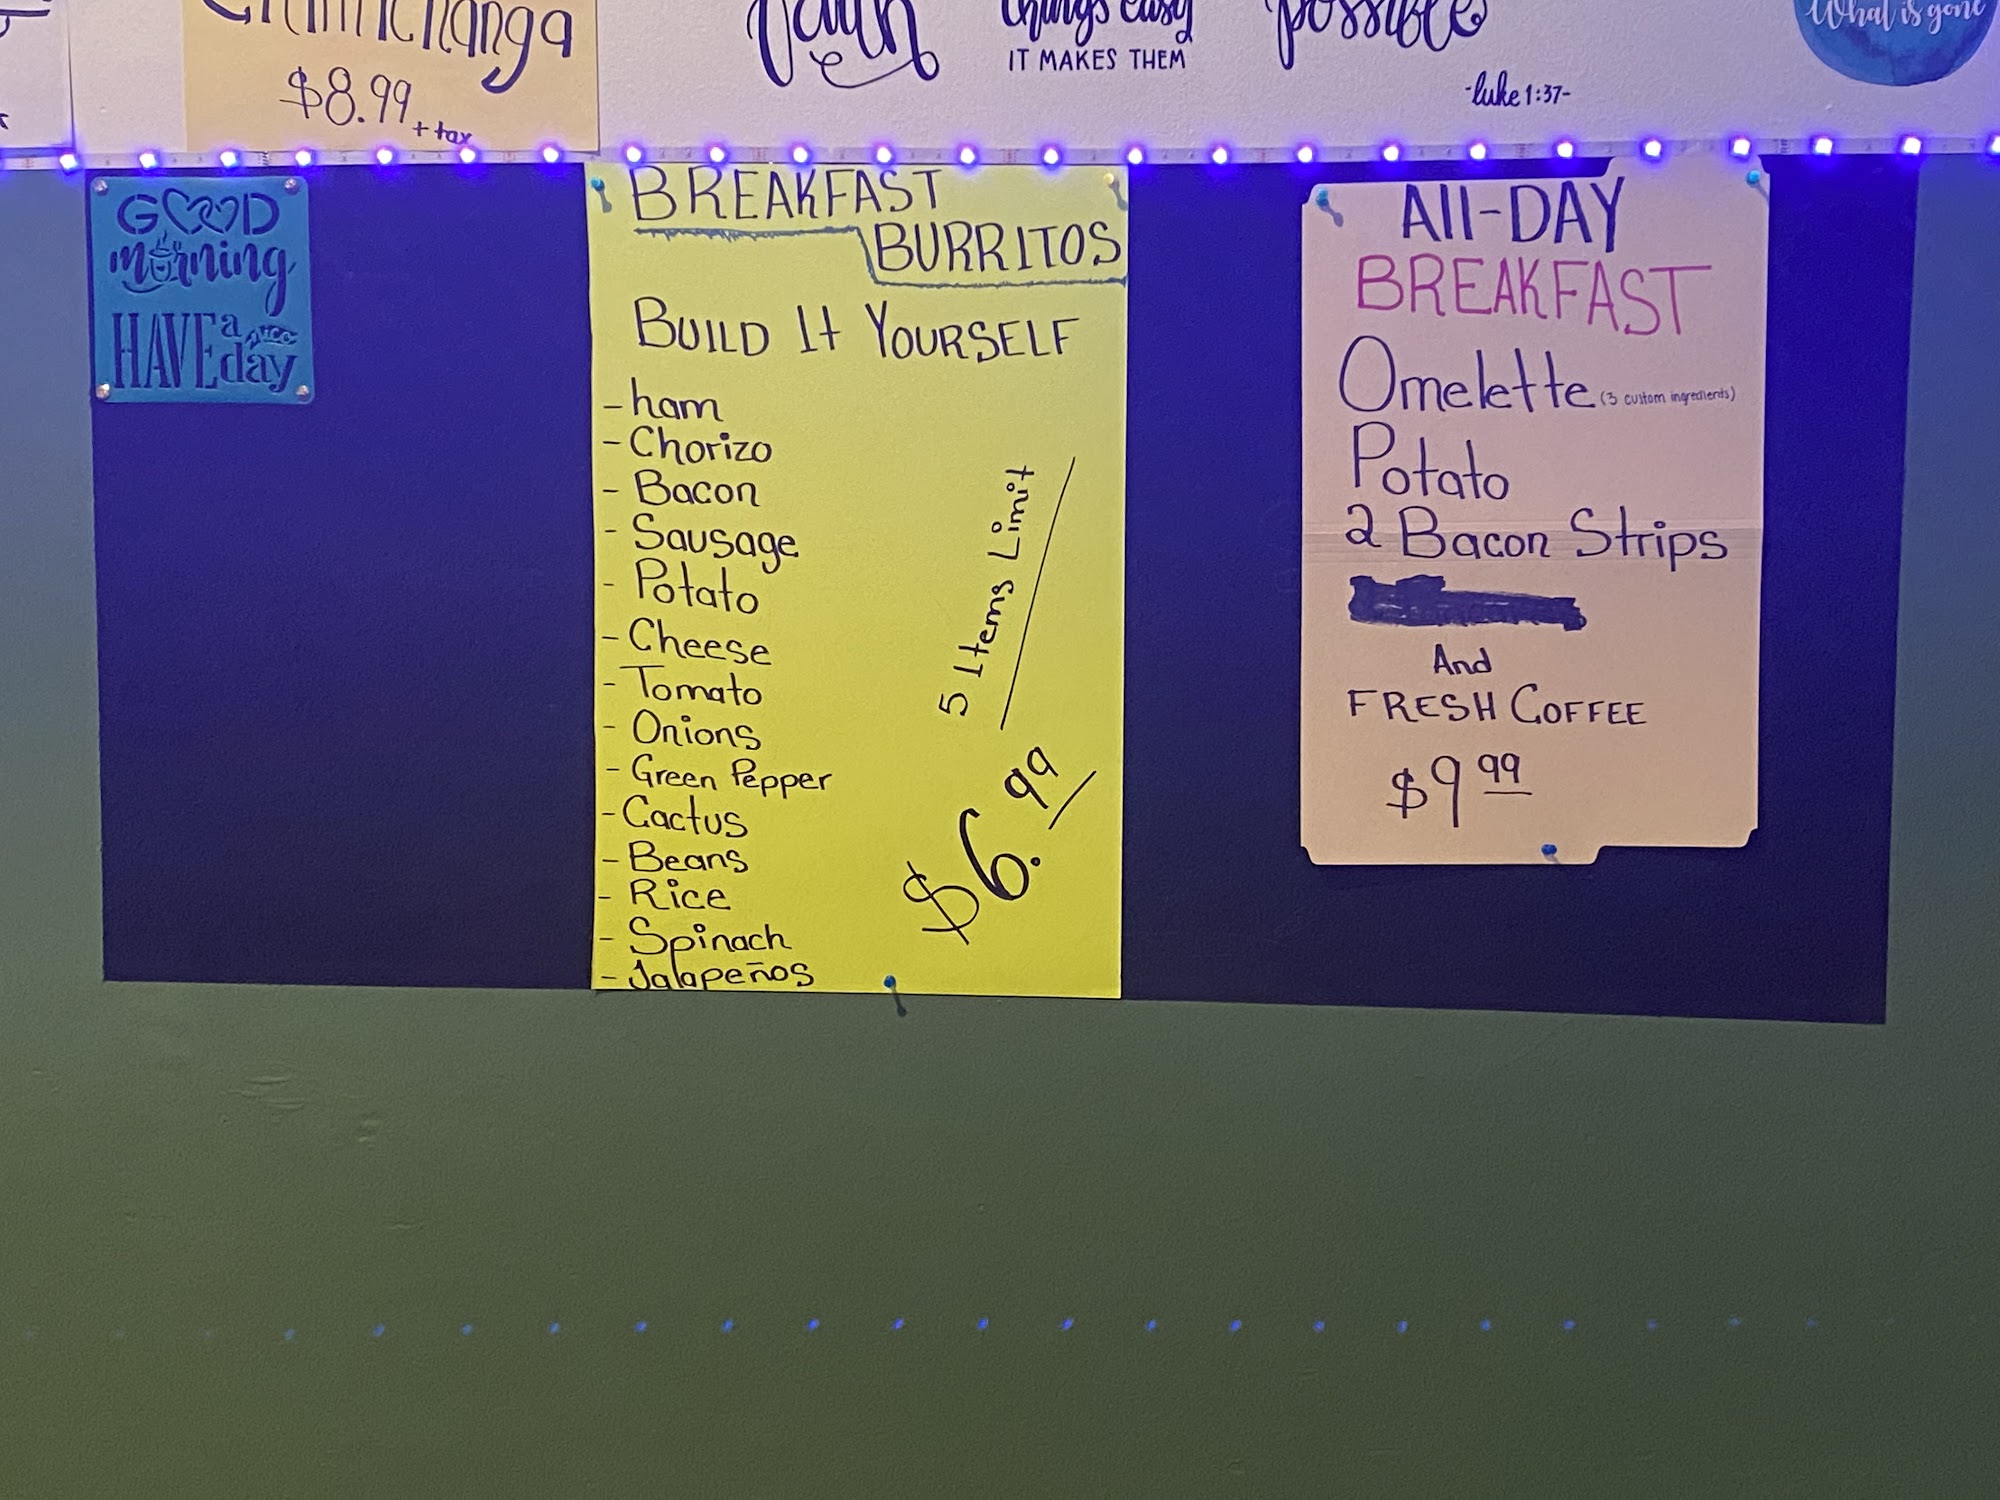 Chimichanga
$8.99 + tax
faith
things easy
IT MAKES THEM
possible
-luke 1:37-
What is gone
GOOD
morning
HAVE a nice
day
BREAKFAST
BURRITOS
BUILD It YOURSELF
- ham
- Chorizo
- Bacon
- Sausage
- Potato
- Cheese
- Tomato
- Onions
- Green Pepper
- Cactus
- Beans
- Rice
- Spinach
- Jalapeños
5 Items Limit
$6.99
All-DAY
BREAKFAST
Omelette (3 custom ingredients)
Potato
2 Bacon Strips
And
FRESH COFFEE
$9 99